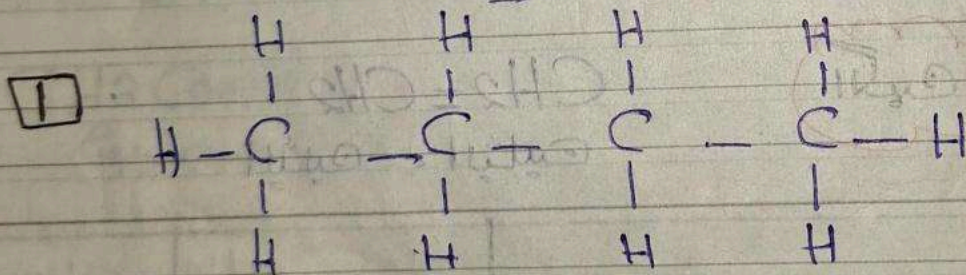 H H H H
1 H-C-C-C-C-H
H H H H